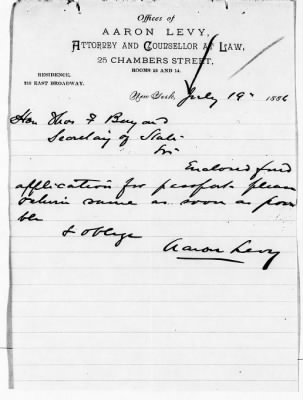 Offices of
AARON LEVY,
ATTORNEY AND COUNSELLOR AT LAW,
25 CHAMBERS STREET,
ROOMS 13 AND 14.
RESIDENCE,
EAST BROADWAY.
New York, July 19" 1886
Hon Thos F Bayard
Secretary of State
Sir
Enclosed find
application for passport please
return same as soon as possi
ble
& oblige
Aaron Levy